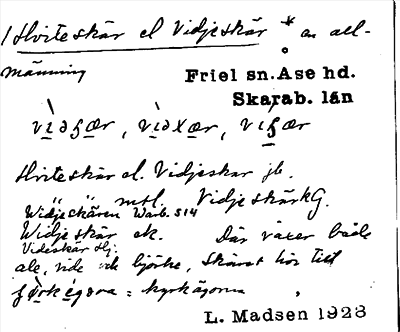 1 Hviteskär el Vidjeskär * an all-
männing
Friel sn. Åse hd.
Skarab. län
Hviteskär el. Vidjeskär jb.
mtl. VidjeskärkG.
Widjeskären Warb. S14
Widjeskär ek. Där växer både
Videskär Hj.
ale, vide och björke, Skäret hör till
= kyrkägorna
L. Madsen 1928